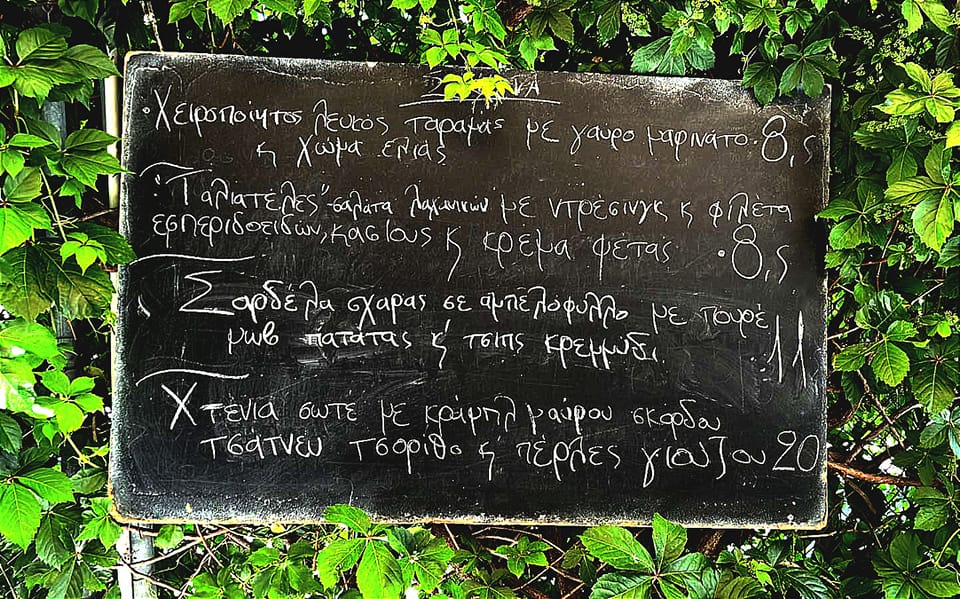 ·Χειροποίητος λευκός ταραμάς με γαύρο μαρινάτο·8,5
κ χώμα ελιάς
·"Ταλιατέλες"-σαλάτα λαχανικών με ντρέσινγκ κ φιλέτα
εσπεριδοειδών, κασιους κ κρεμα φέτας ·8,5
Σαρδέλα σχαρας σε αμπελόφυλλο με πουρέ
μωβ πατάτας κ τσιπς κρεμμύδι 11
Χτένια σωτέ με κράμπλ μαύρου σκορδου
τσάτνευ τσορίθο κ πέρλες γιούζου 20